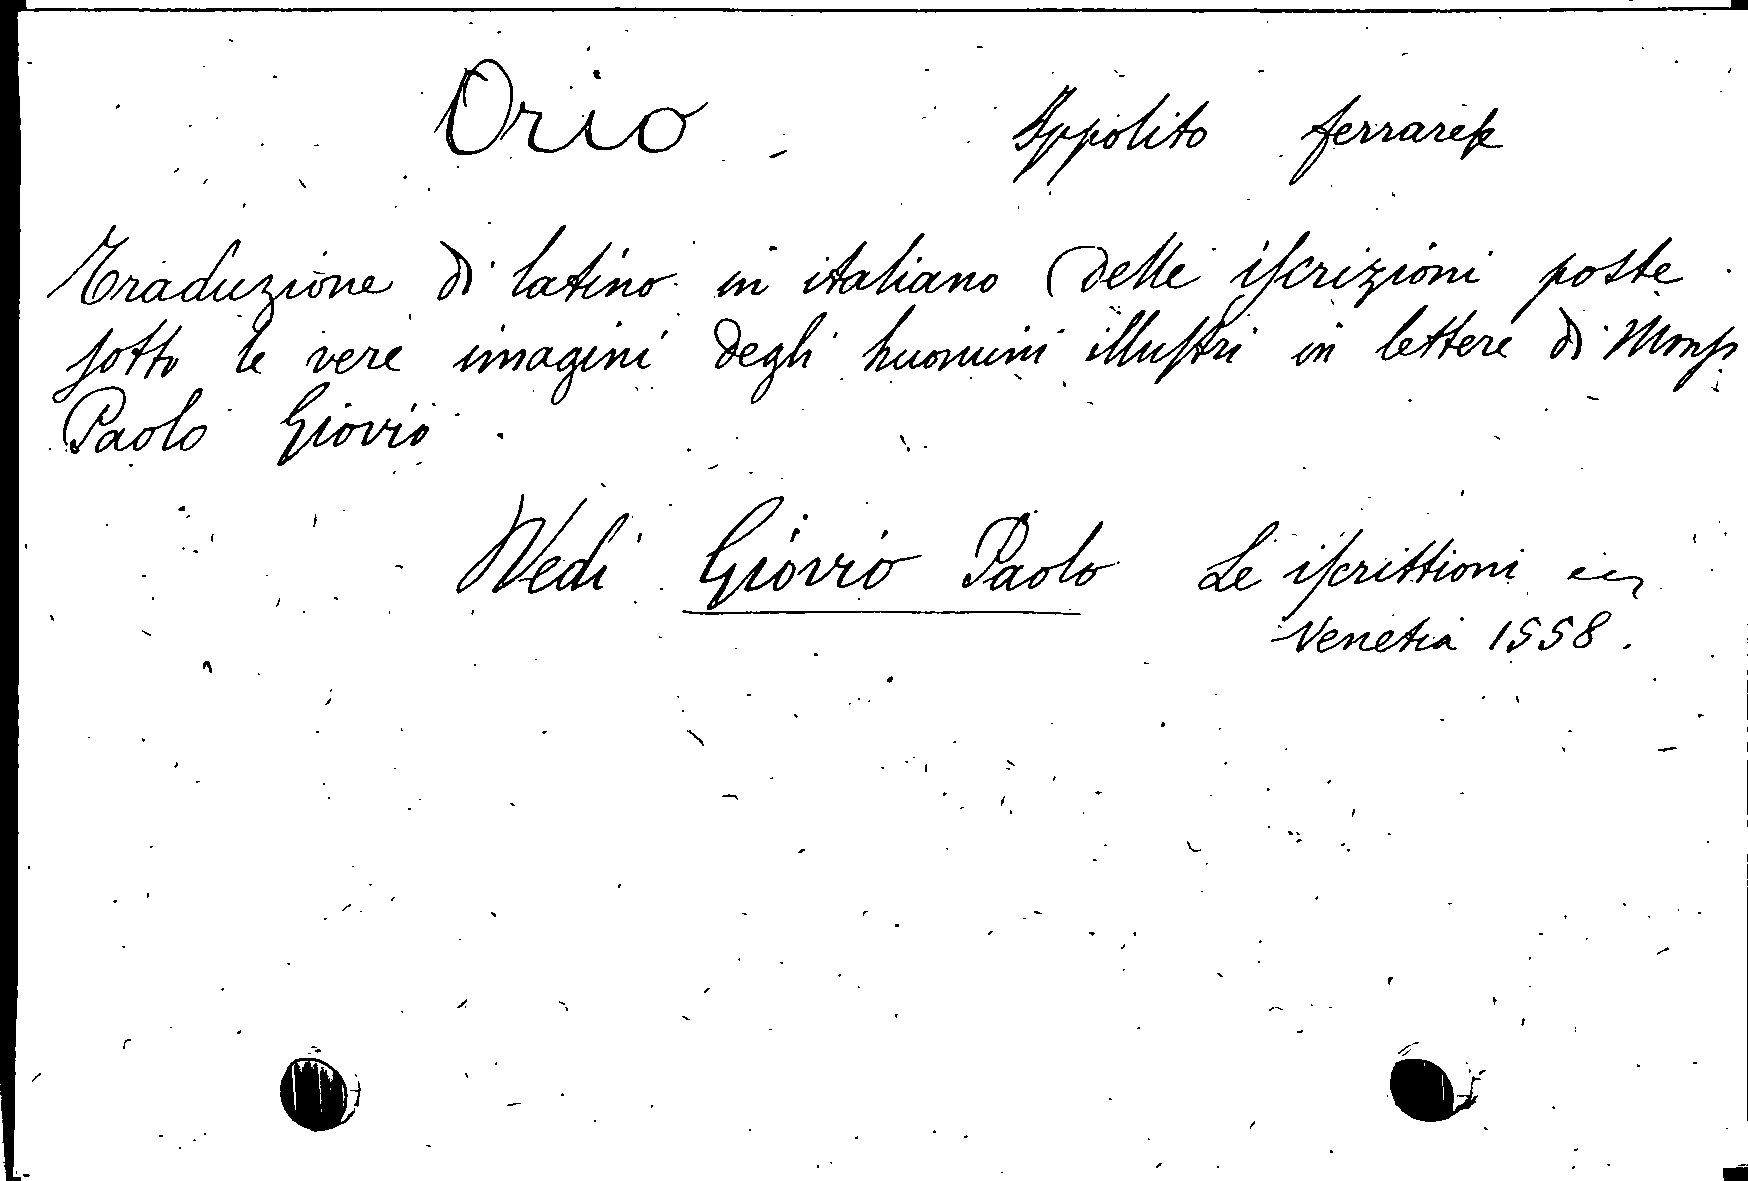 Orio Ippolito ferrareſe
Traduzione di latino in italiano delle iſcrizioni poste
ſotto le vere imagini degli huomini illuſtri in lettere di Monſr
Paolo Giovio
Vedi Giovio Paolo Le iſcrittioni
Venetia 1558.